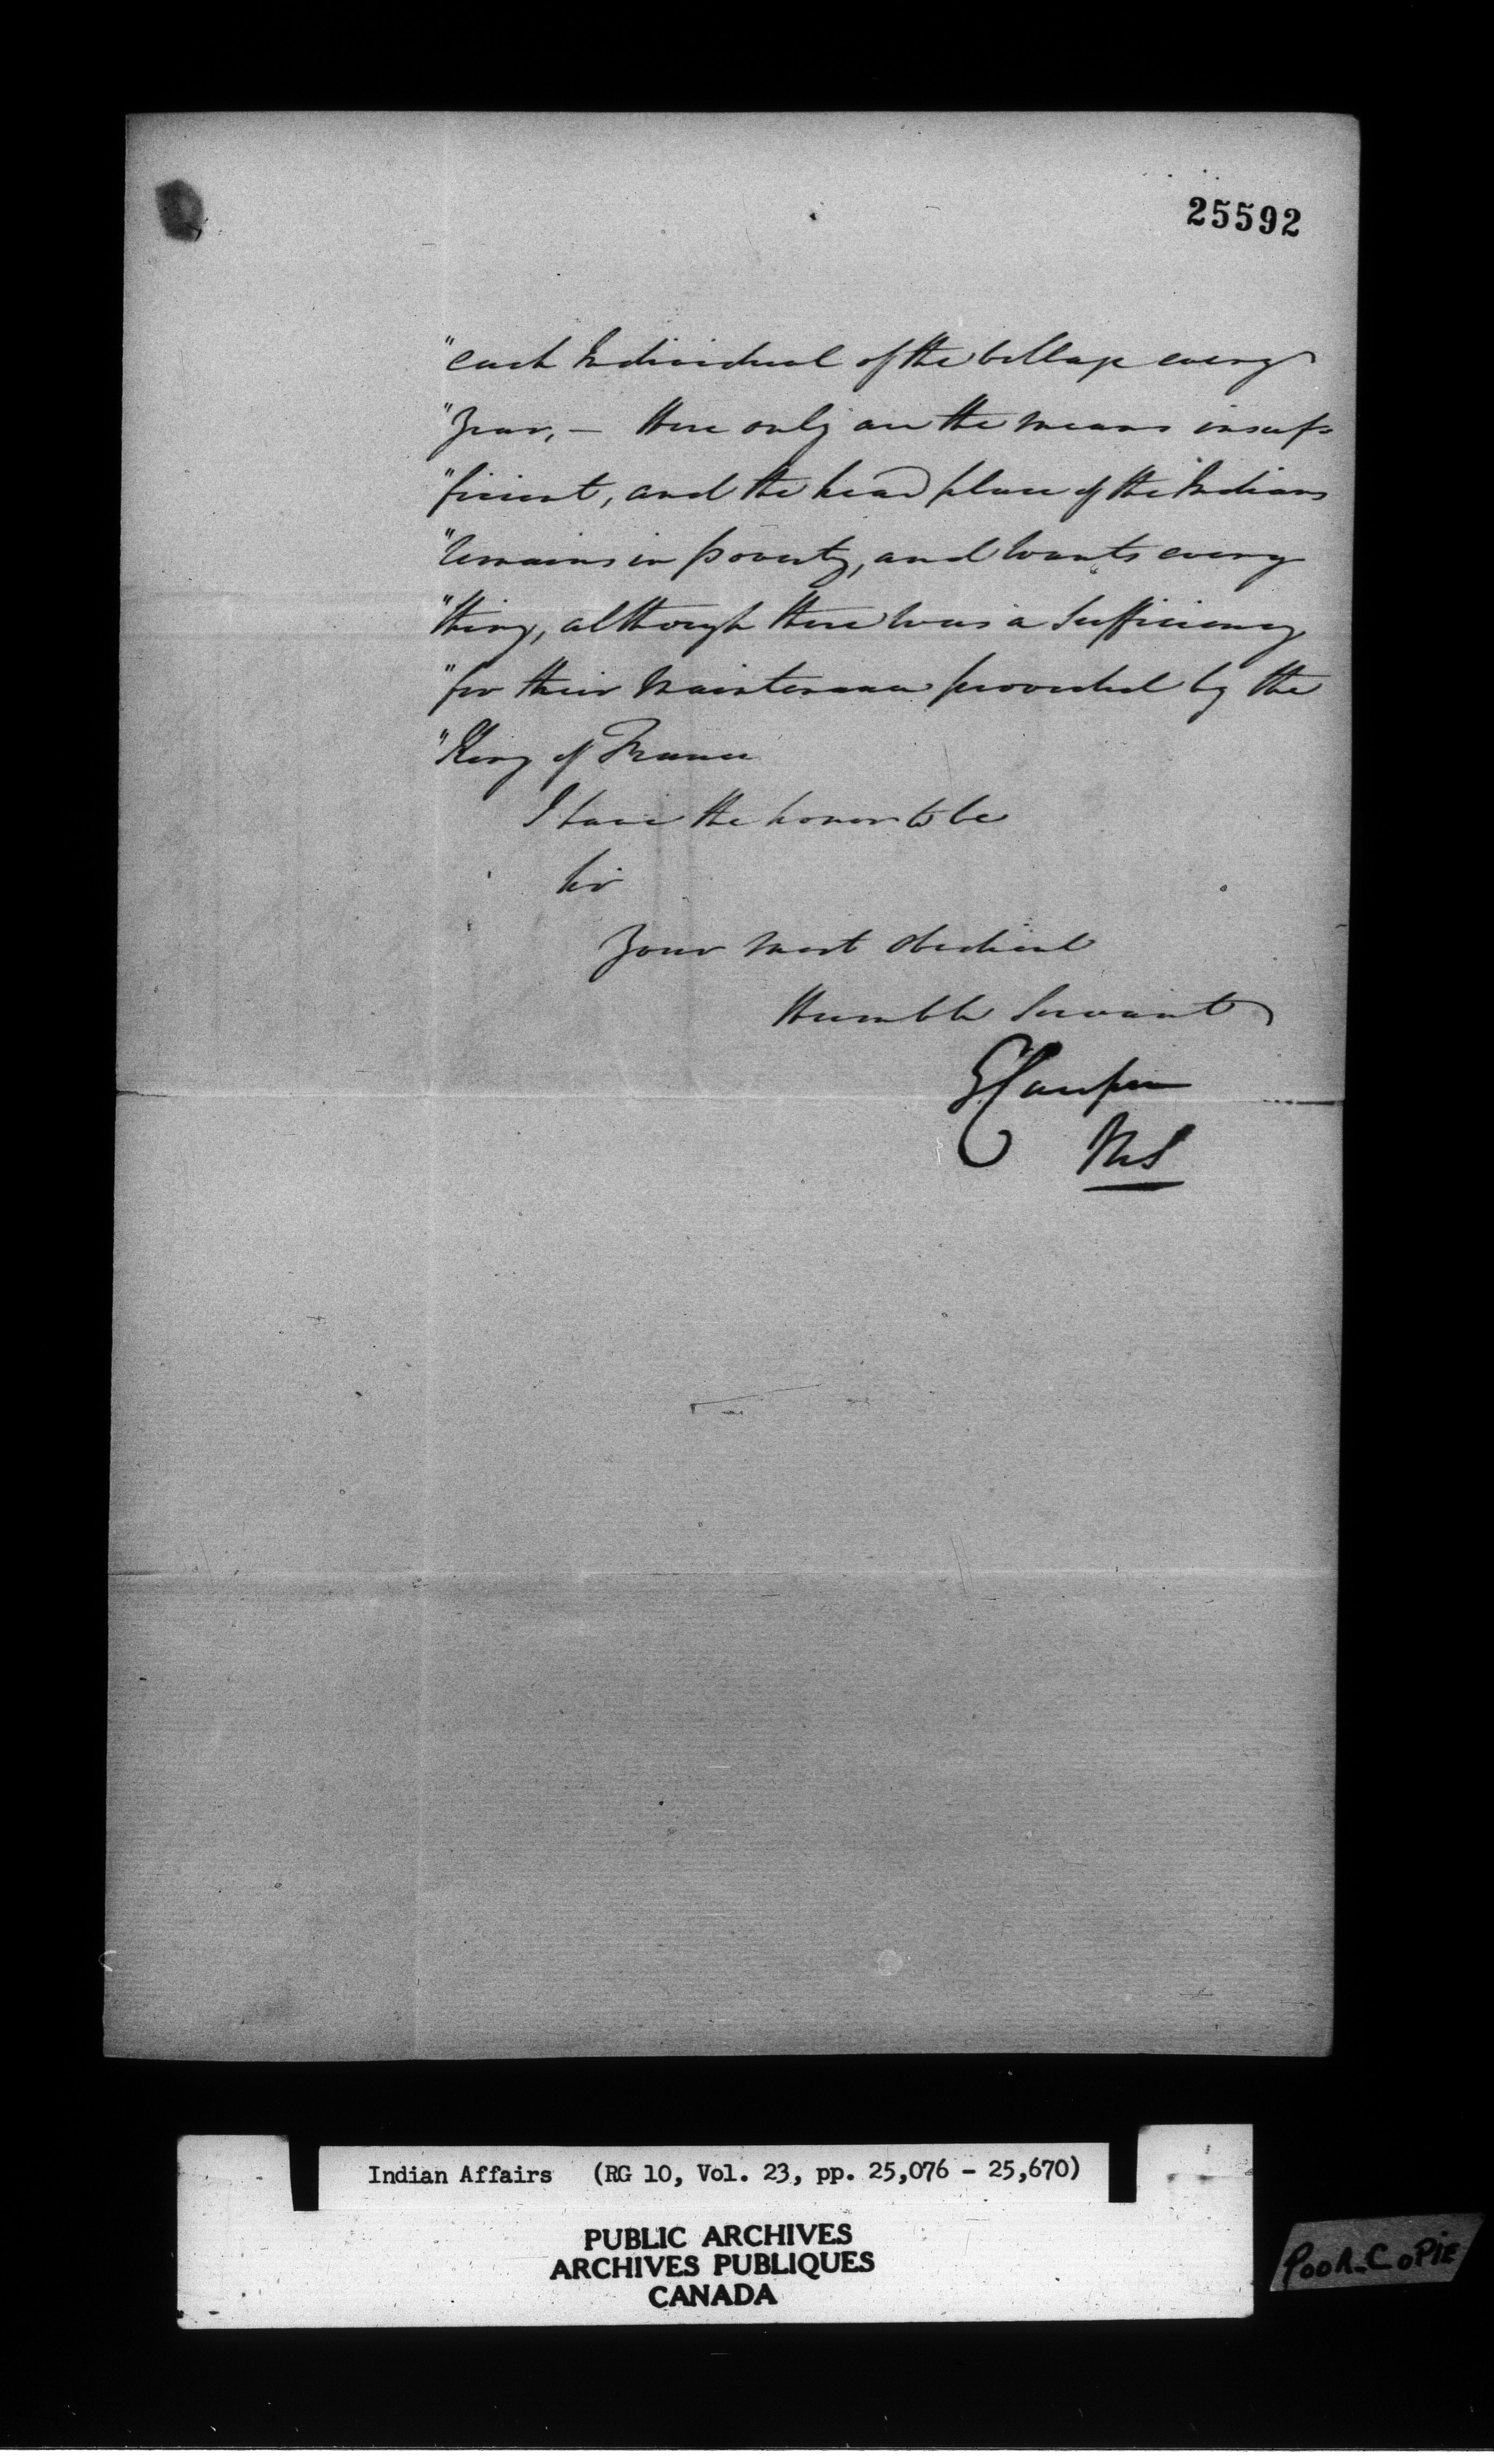 25592
"each Individual of the Village every
"Year, — Here only are the means insuf=
"ficient, and the head place of the Indians
"remains in poverty, and wants every
"thing, although there was a Sufficiency
"for their Maintenance provided by the
"King of France
I have the honor to be
Sir
Your most obedient
Humble Servant
Indian Affairs (RG 10, Vol. 23, pp. 25,076 - 25,670)
PUBLIC ARCHIVES
ARCHIVES PUBLIQUES
CANADA
POOR COPIE